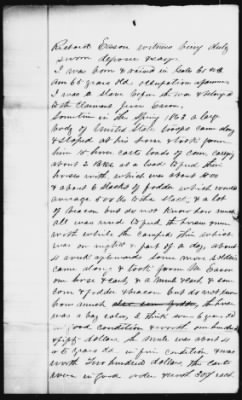 Richard Eason witness being duly
sworn deposes & says.
I was born & raised in Gates Co NC
am 65 years old, occupation a farmer
I was a slave before the war & belonged
to the Claimant Jesse Eason.
Sometime in the Spring 1862 a large
body of United States troops came along
& stoped at his house & took from
him 10 horse cart loads of corn,
about 2 to a load to feed their
horses with, which was about
& about 6 stacks of fodder which would
average 500 lbs to the stack, & a lot
of bacon but do not know how much
all was used to feed the horses men
with while the camped this which
was one night & part of a day, about
a week afterwards some more soldiers
came along & took from Mr Eason
one horse & cart, & a mule & cart & some
corn & fodder & bacon but do not know
how much the horse
was a bay color, I think six years old
in good condition & worth one hundred
& fifty dollars the mule was about 4
or 5 years old in fine condition & was
worth Two hundred dollars The carts
were in good order & worth 20$ each